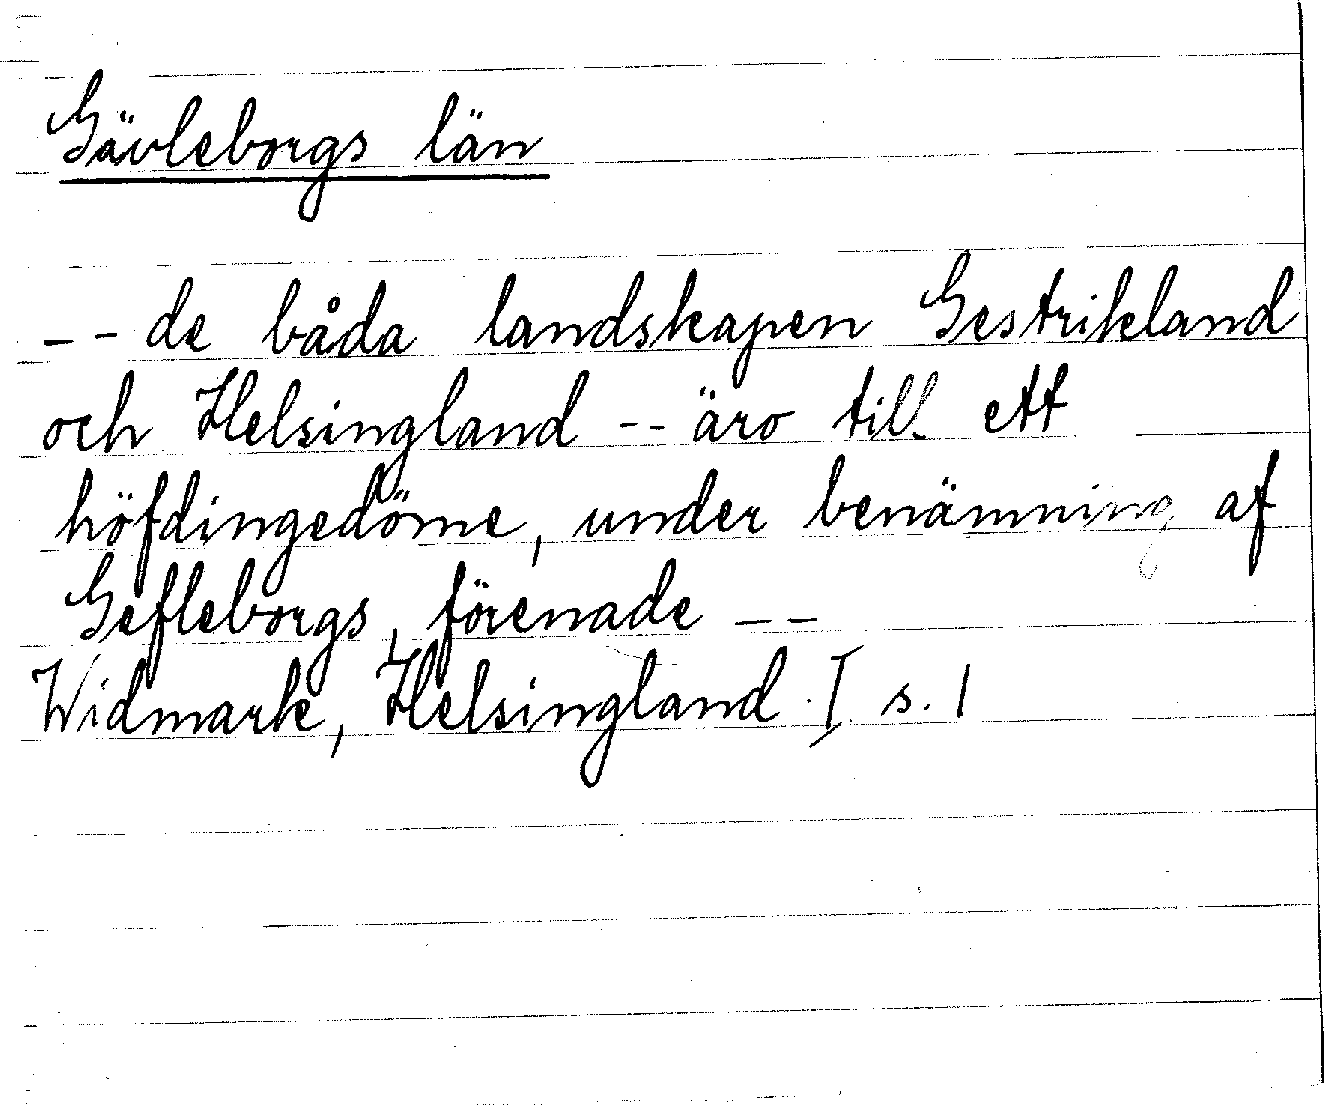 Gävleborgs län
-- de båda landskapen Gestrikland
och Helsingland -- äro till ett
höfdingedöme, under benämning af
Gefleborgs, förenade --
Widmark, Helsingland I s. 1